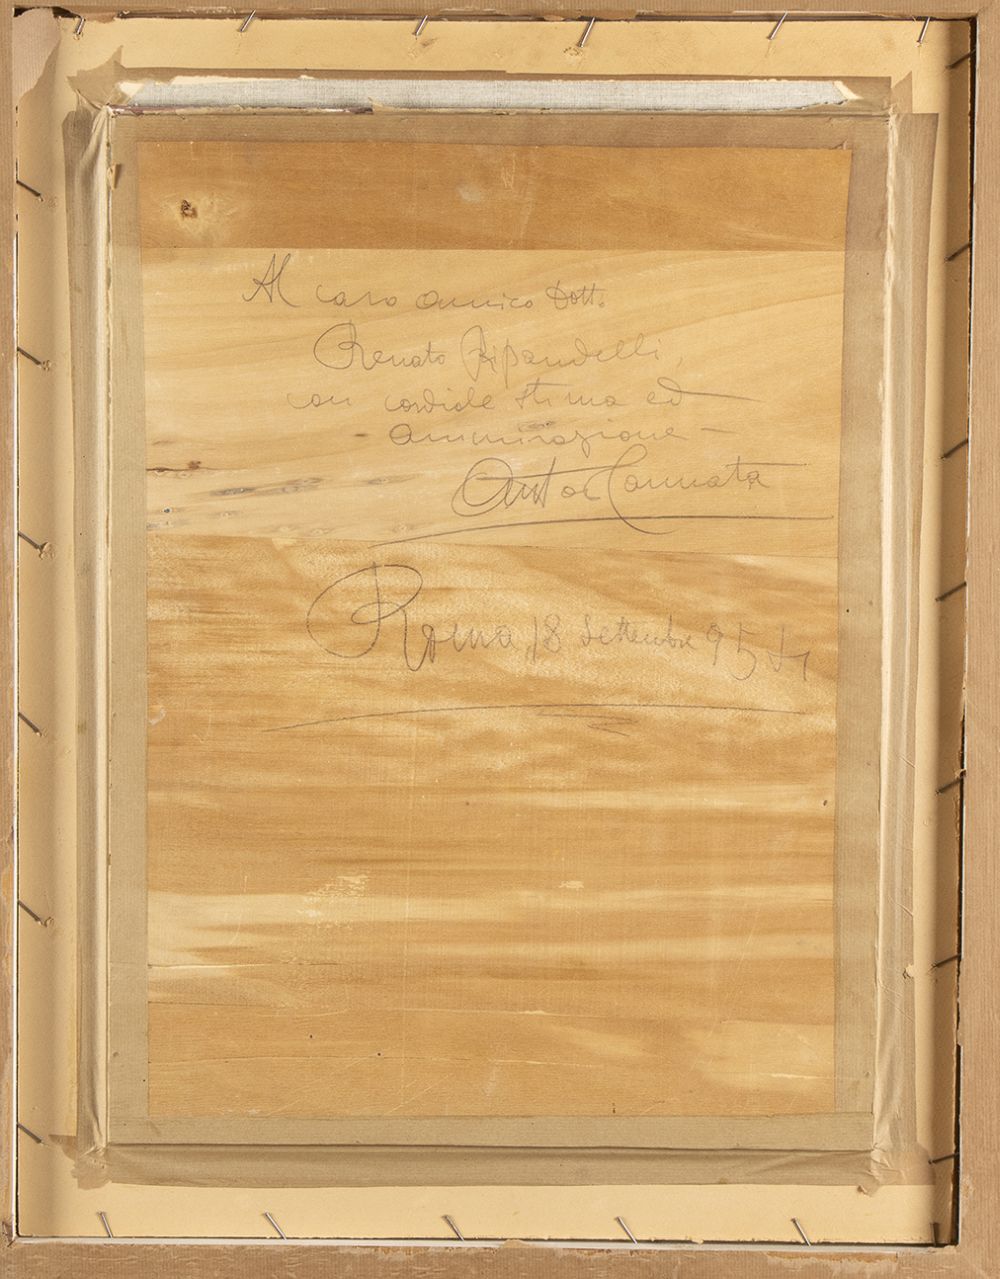 Al caro amico Dott.
Renato Ripandelli,
con cordiale stima ed
ammirazione -
Cannata
Roma, 18 Settembre 95